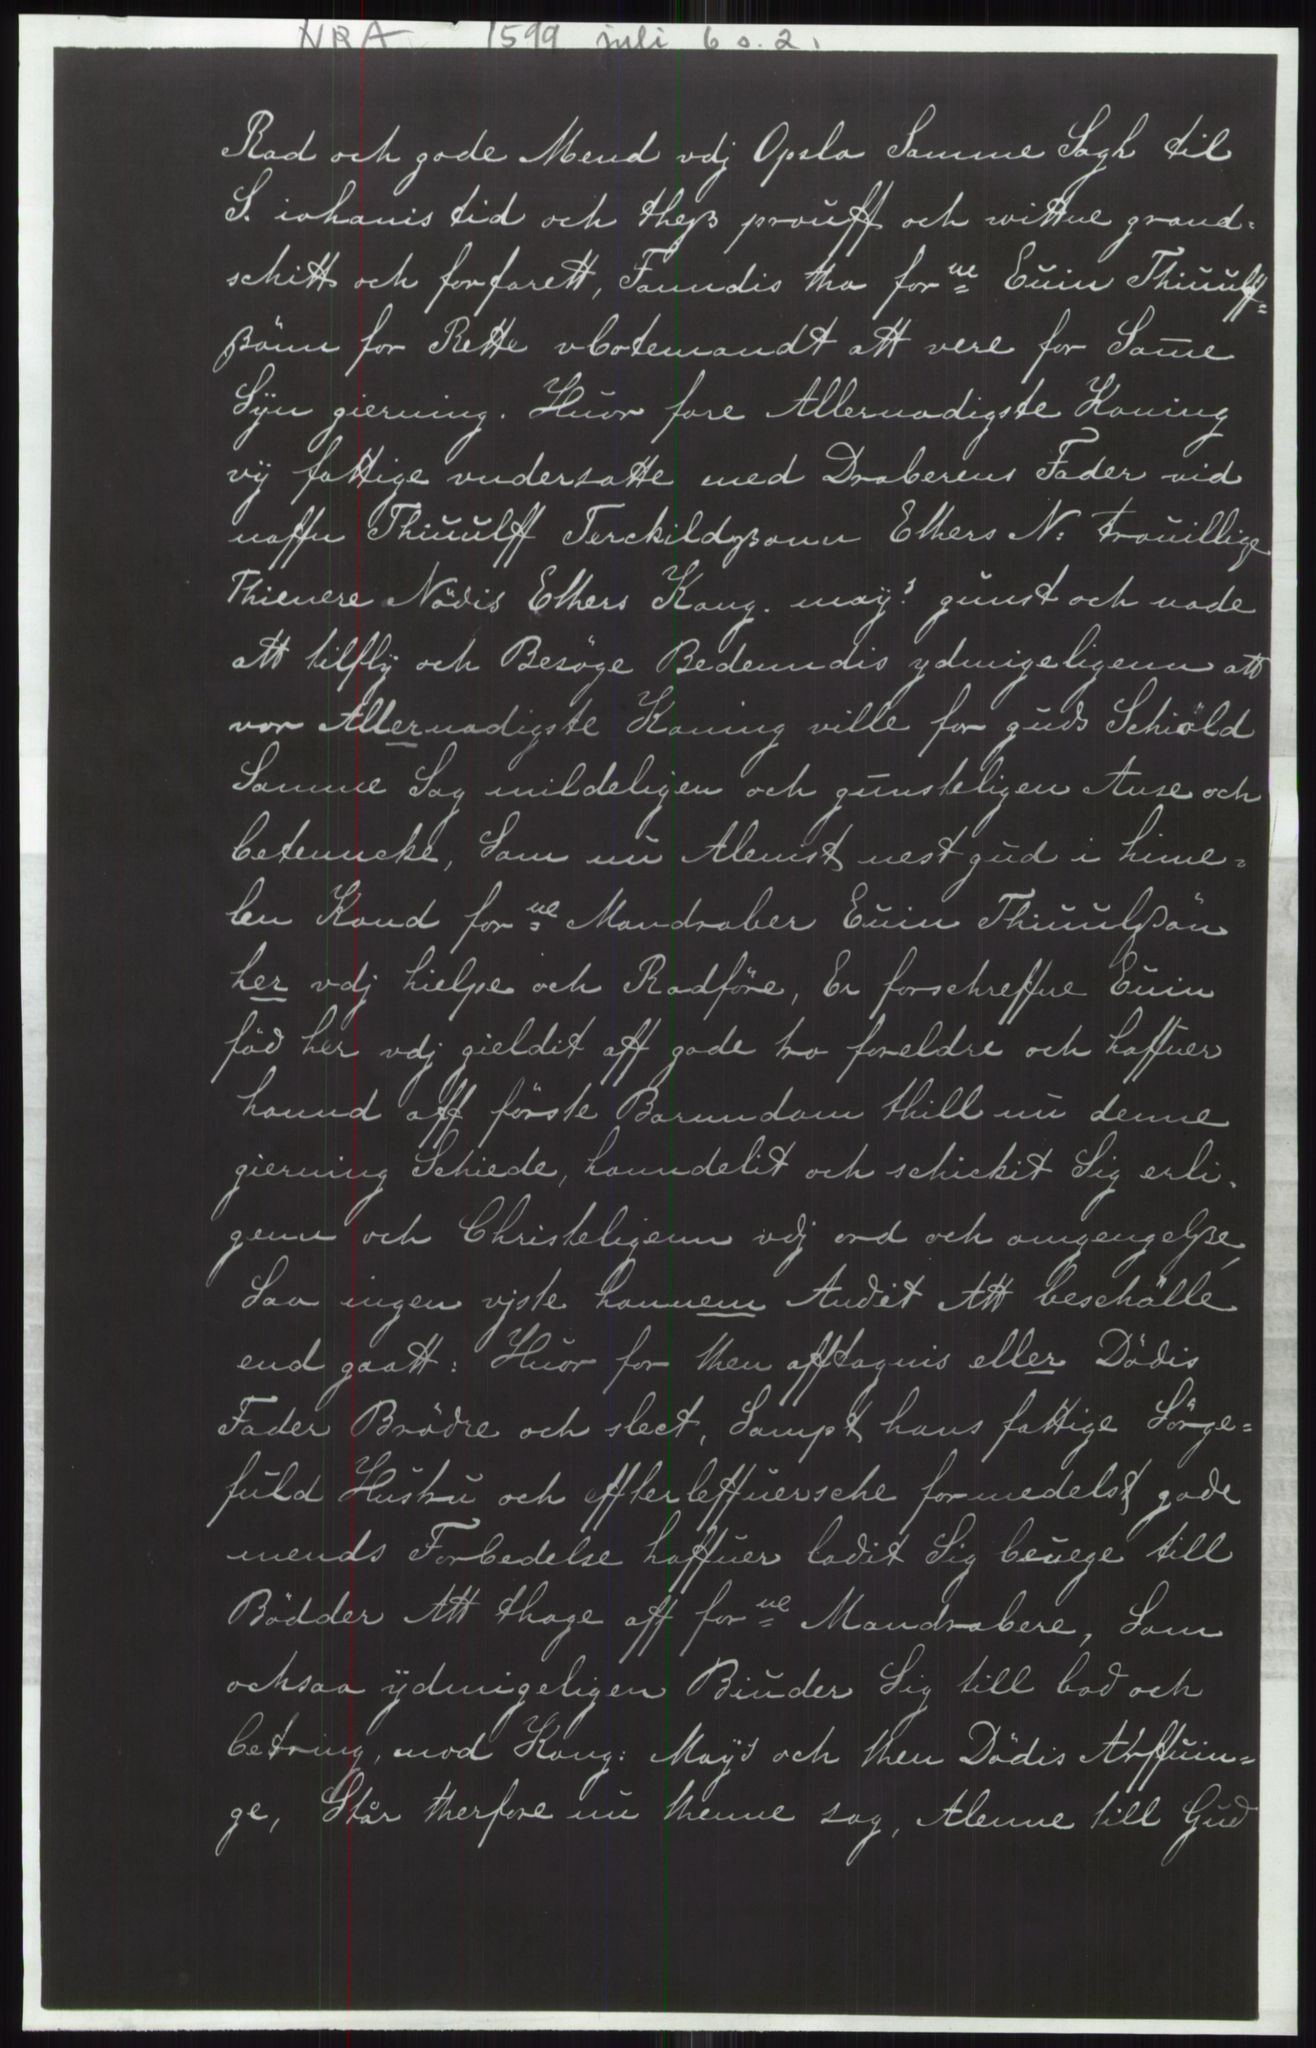 NRA 1599 juli 6 s. 2.
Rad och gode Mend vdj Opslo Samme Sagh til
S. iohanis tid och theß prouff och wittne grand-
schitt och forfarett, Fanndis tha forne Euin Thiuulff-
ßönn for Rette vbotemandt att vere for Same
Sÿn gierning. Huor fore Allernadigste Koning
vÿ fattige vndersatte med Draberens Fader vid
naffn Thiuulff Terckildßonn Ethers N: trouillige
Thienere Nödis Ethers Kong. mayß gunst och nade
att tilflÿ och Besöge Bedenndis ydmigeligenn att
vor Allernadigste Koning ville for guds Schiold
Samme Sag mildeligen och gunsteligen Anse och
betenncke, Som nu Alenst nest gud i hime-
len Kand forne Mandraber Euin Thiuulßön
her vdj hielpe och Radföre, Er forschreffne Euin
föd her vdj gieldit aff gode tro foreldre och haffuer
hannd aff förste Barnndom thill nu denne
gierning Schiede, hanndelit och schickit Sig erli-
genn och Christeligenn vdj ord och omgengelße,
Saa ingen vjste hannem Andet Att beschölle
end gaatt: Huor for then afftagnis eller Dödis
Fader Brödre och slect, Sampt hans fattige Sörge-
fuld Hustru och effterleffuersche formedelst gode
mends Forbedelse haffuer ladit Sig beuege till
Bödder Att thage aff forne Mandrabere, Som
ochsaa ÿdmigeligen Biuder Sig till bod och
betring, mod Kong: Mayß och then Dödis Arffuin-
ge, Står therfore nu thenne sag, Alenne till Gud